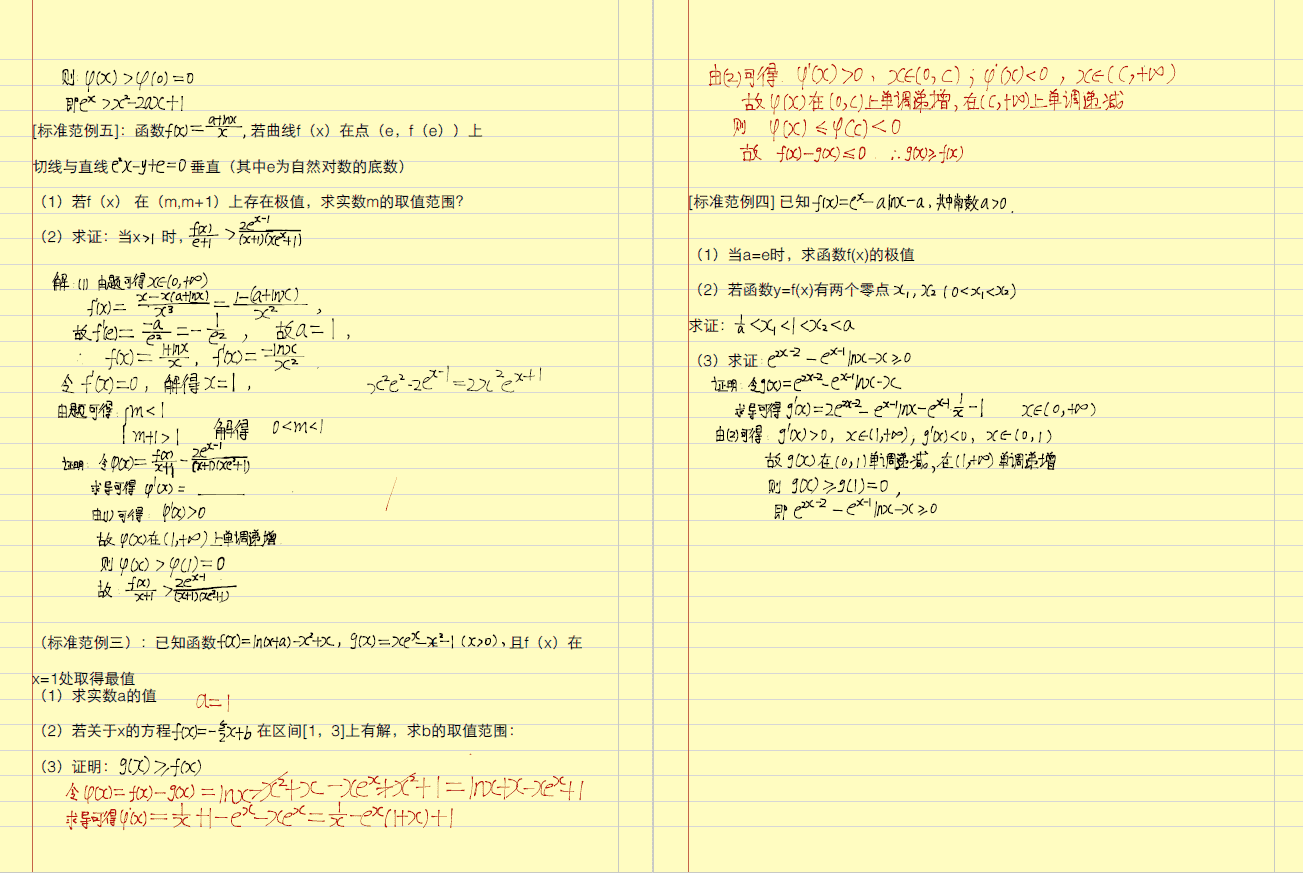 则 φ(x)>φ(0)=0
即e^x>x²-2ax+1
[标准范例五]：函数f(x)=(a+lnx)/x，若曲线f（x）在点（e，f（e））上
切线与直线e²x-y+e=0垂直（其中e为自然对数的底数）
（1）若f（x） 在（m,m+1）上存在极值，求实数m的取值范围？
（2）求证：当x>1 时，f(x)/(e+1) > 2e^(x-1)/((x+1)(xe^x+1))
解：(1) 由题可得x∈(0,+∞)
f'(x)=(x-x(a+lnx))/x³=(1-(a+lnx))/x²，
故f'(e)=-a/e²=-1/e²，故a=1，
∴ f(x)=(1+lnx)/x，f'(x)=-lnx/x²
令f'(x)=0，解得x=1， x²e²-2e^(x-1)=2x²e^(x+1)
由题可得：{m<1
m+1>1 解得 0<m<1
证明：令φ(x)=f(x)/(x+1)-2e^(x-1)/((x+1)(xe^x+1))
求导可得 φ'(x)= ____
由(1)可得：φ'(x)>0
故 φ(x)在(1,+∞)上单调递增
则φ(x)>φ(1)=0
故：f(x)/(x+1)>2e^(x-1)/((x+1)(xe^x+1))
（标准范例三）：已知函数f(x)=ln(x+a)-x²+x，g(x)=xe^x-x²-1(x>0)，且f（x）在
x=1处取得最值
（1）求实数a的值 a=1
（2）若关于x的方程f(x)=-5/2x+b 在区间[1，3]上有解，求b的取值范围：
（3）证明：g(x)≥f(x)
令φ(x)=f(x)-g(x)=lnx-x²+x-xe^x+x²+1=lnx+x-xe^x+1
求导可得φ'(x)=1/x+1-e^x-xe^x=1/x-e^x(1+x)+1
由(2)可得：φ'(x)>0，x∈(0,c)；φ'(x)<0，x∈(c,+∞)
故φ(x)在(0,c)上单调递增，在(c,+∞)上单调递减
则 φ(x)≤φ(c)<0
故 f(x)-g(x)≤0 ∴g(x)≥f(x)
[标准范例四] 已知f(x)=e^x-alnx-a，其中常数a>0.
（1）当a=e时，求函数f(x)的极值
（2）若函数y=f(x)有两个零点x₁,x₂(0<x₁<x₂)
求证：1/a<x₁<1<x₂<a
（3）求证：e^(2x-2)-e^(x-1)lnx-x≥0
证明：令g(x)=e^(2x-2)-e^(x-1)lnx-x
求导可得g'(x)=2e^(2x-2)-e^(x-1)lnx-e^(x-1)·1/x-1 x∈(0,+∞)
由(2)可得：g'(x)>0，x∈(1,+∞)，g'(x)<0，x∈(0,1)
故g(x)在(0,1)单调递减，在(1,+∞)单调递增
则 g(x)≥g(1)=0，
即 e^(2x-2)-e^(x-1)lnx-x≥0